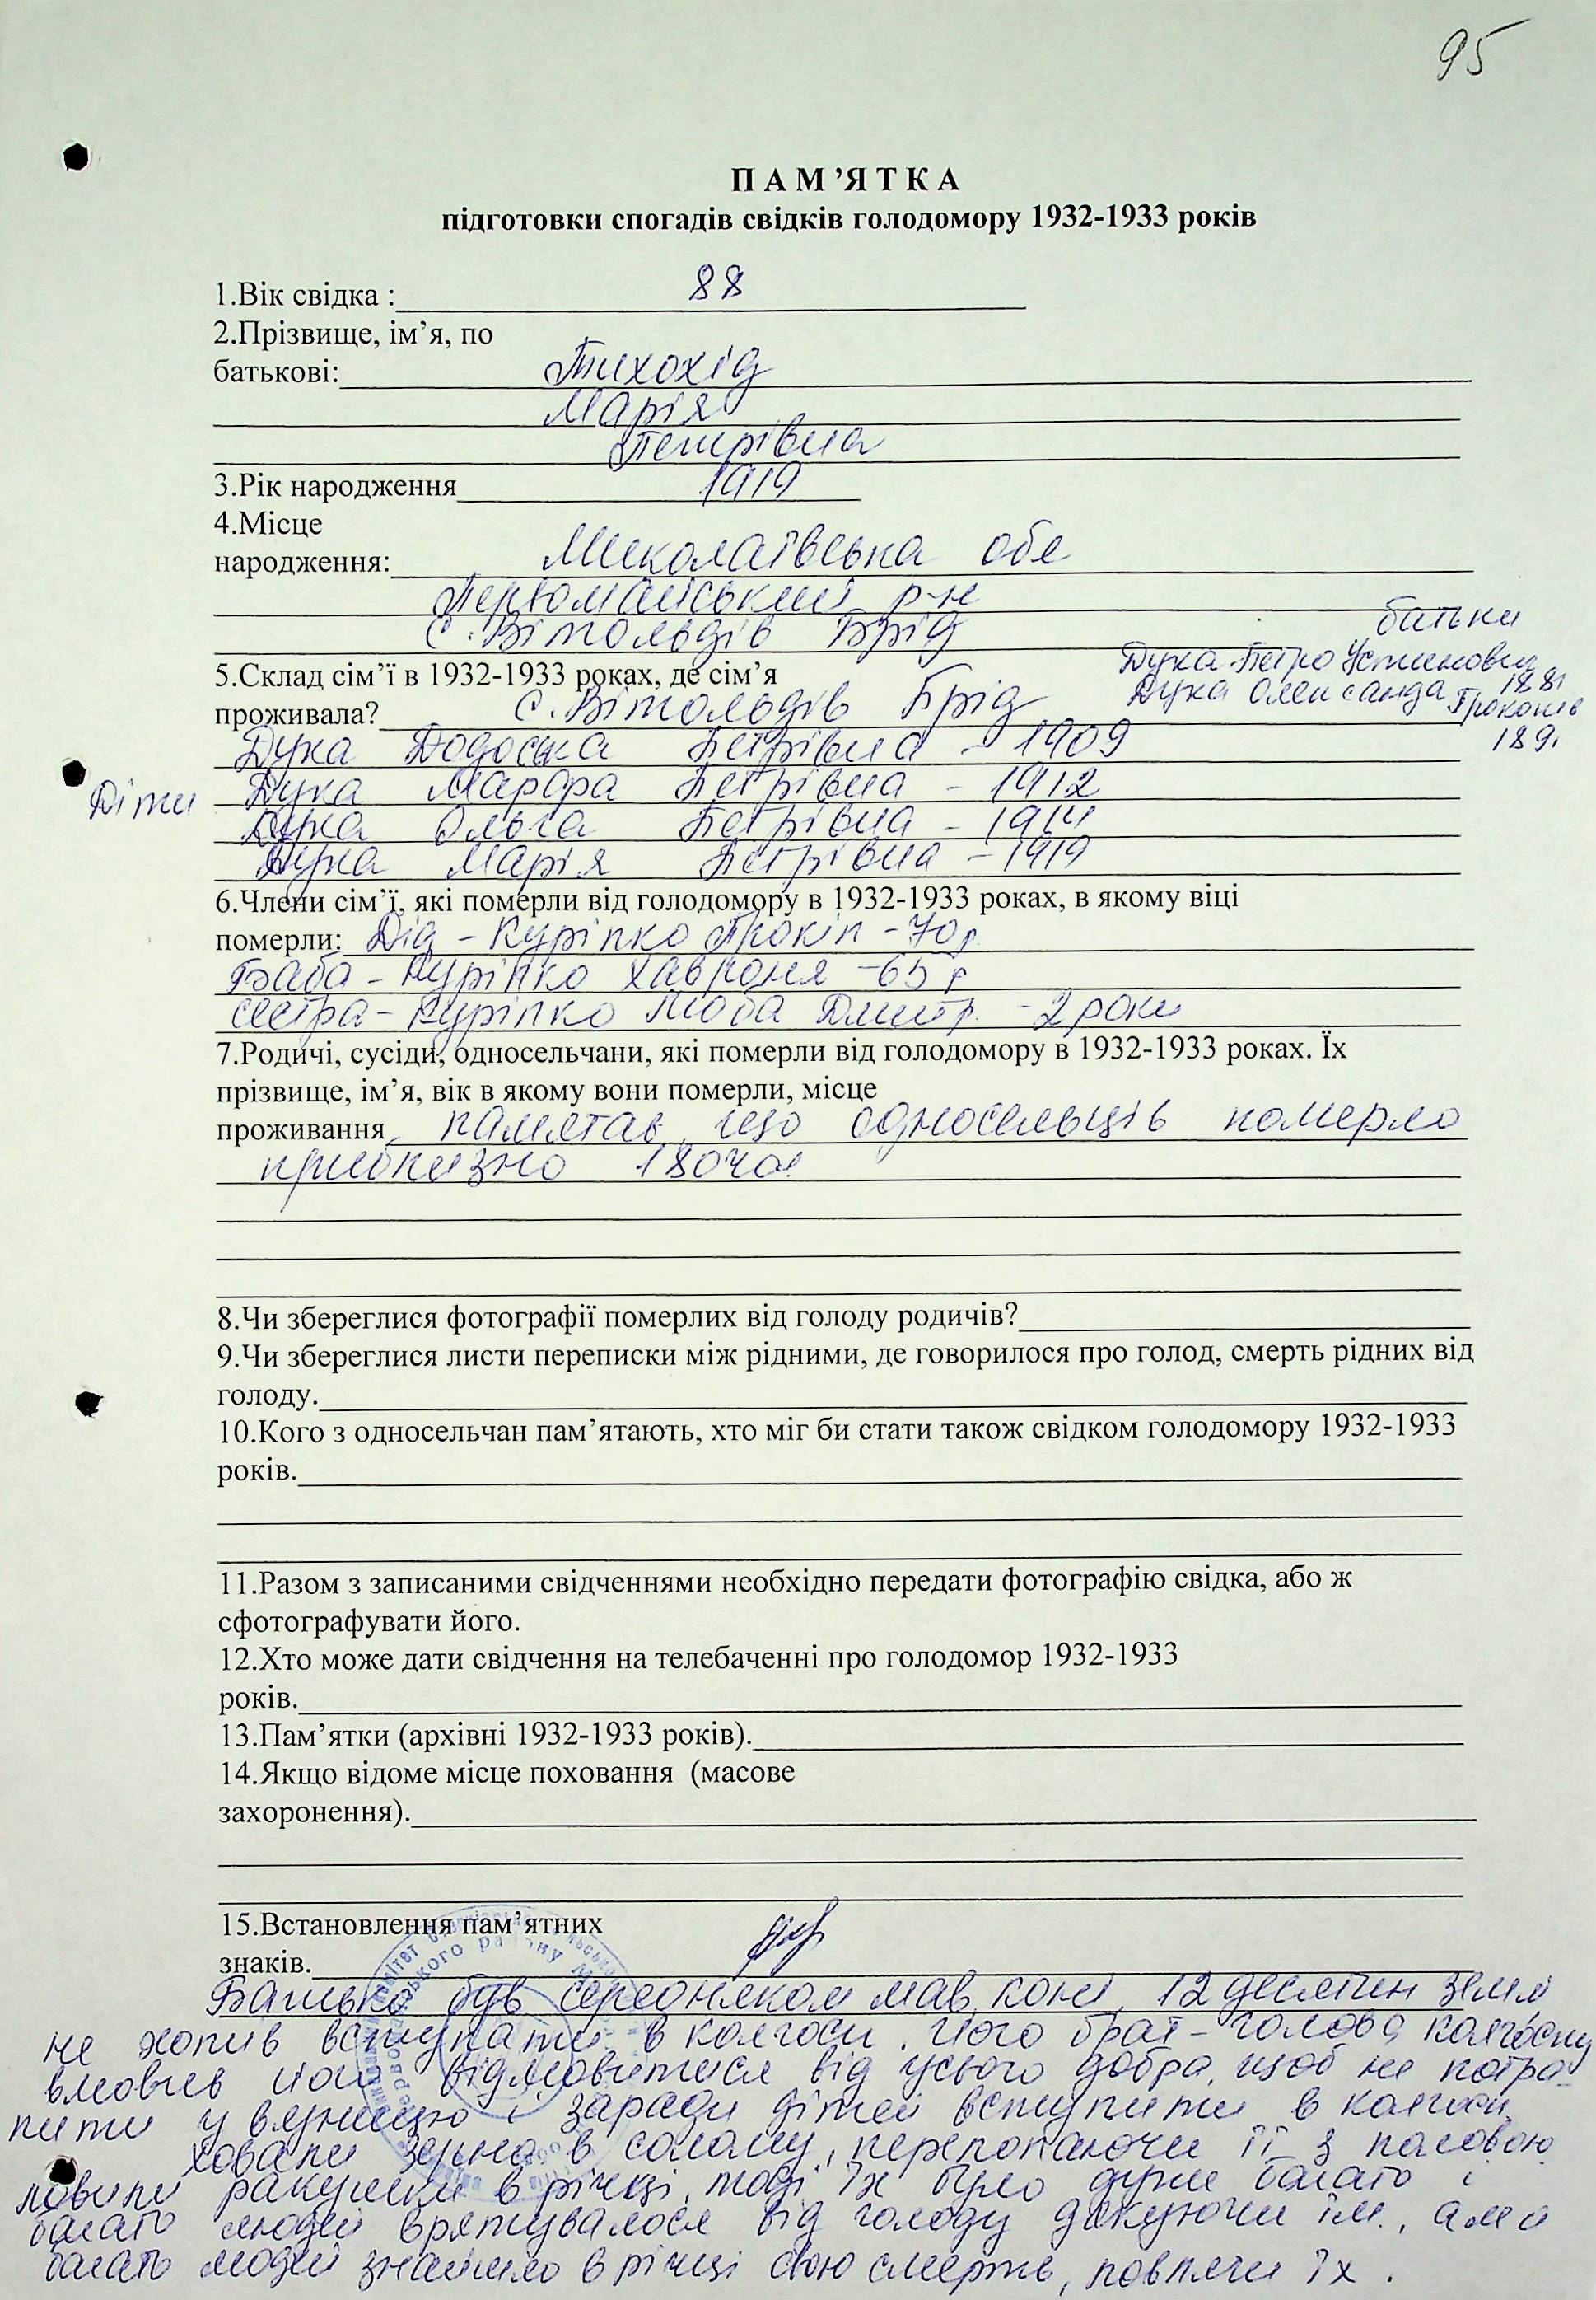 95
П А М ’Я Т К А
підготовки спогадів свідків голодомору 1932-1933 років
1.Вік свідка : 88
2.Прізвище, ім’я, по
батькові: Тихохід
Марія
Петрівна
3.Рік народження 1919
4.Місце
народження: Миколаївська обл
Первомайський р-н
с. Вітольдів Брід
батьки
5.Склад сім’ї в 1932-1933 роках, де сім’я
Дука Петро Устинович
1881
проживала? с. Вітольдів Брід
Дука Олександа Прокопів
189
Дука Додоська Петрівна - 1909
Діти Дука Марфа Петрівна - 1912
Дука Ольга Петрівна - 1914
Дука Марія Петрівна - 1919
6.Члени сім’ї, які померли від голодомору в 1932-1933 роках, в якому віці
померли: Дід - Куріпко Прокіп - 70 р
Баба - Куріпко Хавроня - 65 р
сестра - Куріпко Люба Дмитр. - 2 роки
7.Родичі, сусіди, односельчани, які померли від голодомору в 1932-1933 роках. Їх
прізвище, ім’я, вік в якому вони померли, місце
проживання, памятає що односельців померло
приблизно 180 чол
8.Чи збереглися фотографії померлих від голоду родичів?
9.Чи збереглися листи переписки між рідними, де говорилося про голод, смерть рідних від
голоду.
10.Кого з односельчан пам’ятають, хто міг би стати також свідком голодомору 1932-1933
років.
11.Разом з записаними свідченнями необхідно передати фотографію свідка, або ж
сфотографувати його.
12.Хто може дати свідчення на телебаченні про голодомор 1932-1933
років.
13.Пам’ятки (архівні 1932-1933 років).
14.Якщо відоме місце поховання (масове
захоронення).
15.Встановлення пам’ятних
знаків.
Батько був середняком мав коні, 12 десятин землі
не хотів вступати в колгосп. Його брат - голова колгоспу
вмовив його відмовитися від усього добра, щоб не потра-
пити у вязницю і заради дітей вступити в колгосп.
Ховали зерно в солому, перелопаючи її з половою
ловили ракушки в річці, тоді їх було дуже багато і
багато людей врятувалося від голоду дякуючи їм, але
багато людей знайшло в річці свою смерть, ловлячи їх.